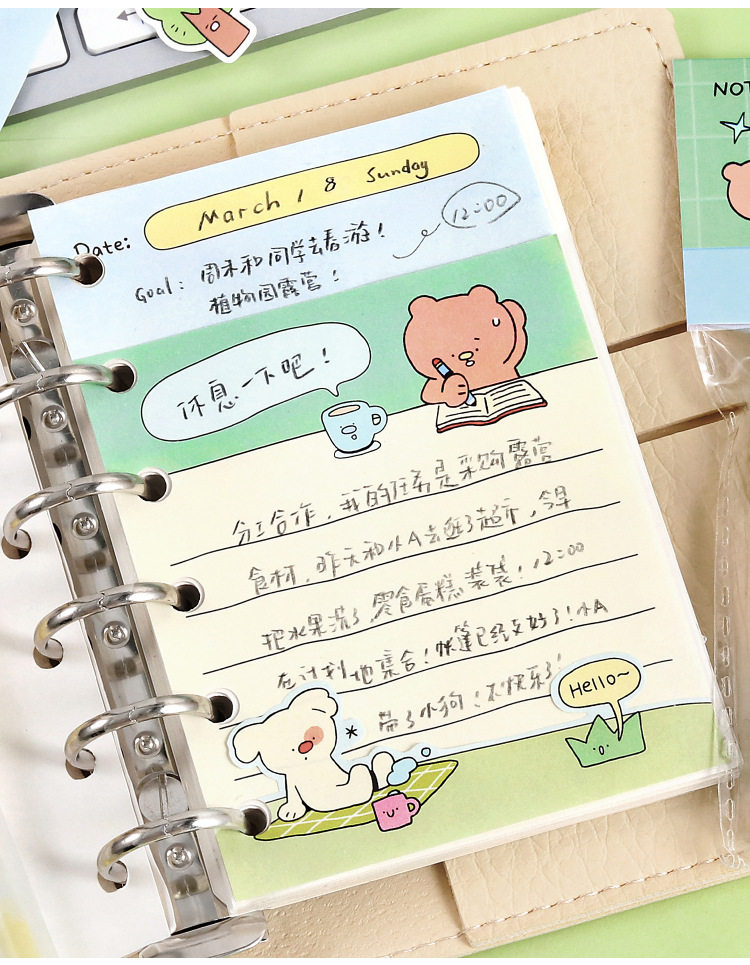 NOT
Date: March / 8 Sunday
12:00
Goal: 周末和同学去春游!
植物园露营!
休息一下吧!
分工合作,我的任务是采购露营
食材,昨天和小A去逛了超市,今早
把水果洗了,零食蛋糕装袋!12:00
在计划地集合!帐篷已经支好了!小A
带了小狗!太快乐了!
Hello~